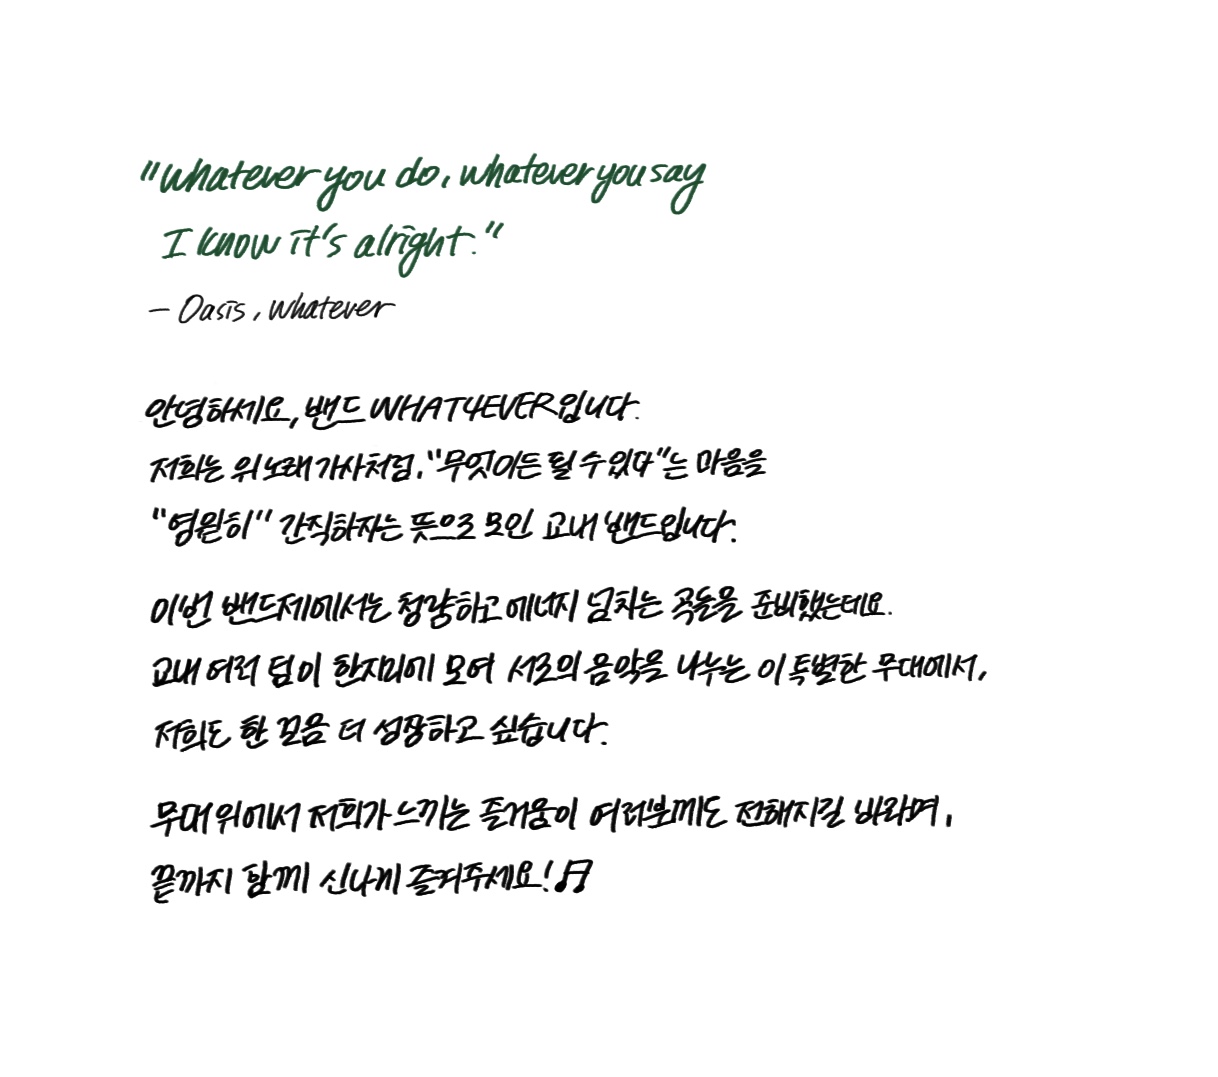 "Whatever you do, whatever you say
I know it's alright."
– Oasis, Whatever
안녕하세요, 밴드 WHAT4EVER입니다.
저희는 위 노래 가사처럼, "무엇이든 될 수 있다"는 마음을
"영원히" 간직하자는 뜻으로 모인 교내 밴드입니다.
이번 밴드제에서는 청량하고 에너지 넘치는 곡들을 준비했는데요.
교내 여러 팀이 한자리에 모여 서로의 음악을 나누는 이 특별한 무대에서,
저희도 한 걸음 더 성장하고 싶습니다.
무대 위에서 저희가 느끼는 즐거움이 여러분께도 전해지길 바라며,
끝까지 함께 신나게 즐겨주세요!🎵